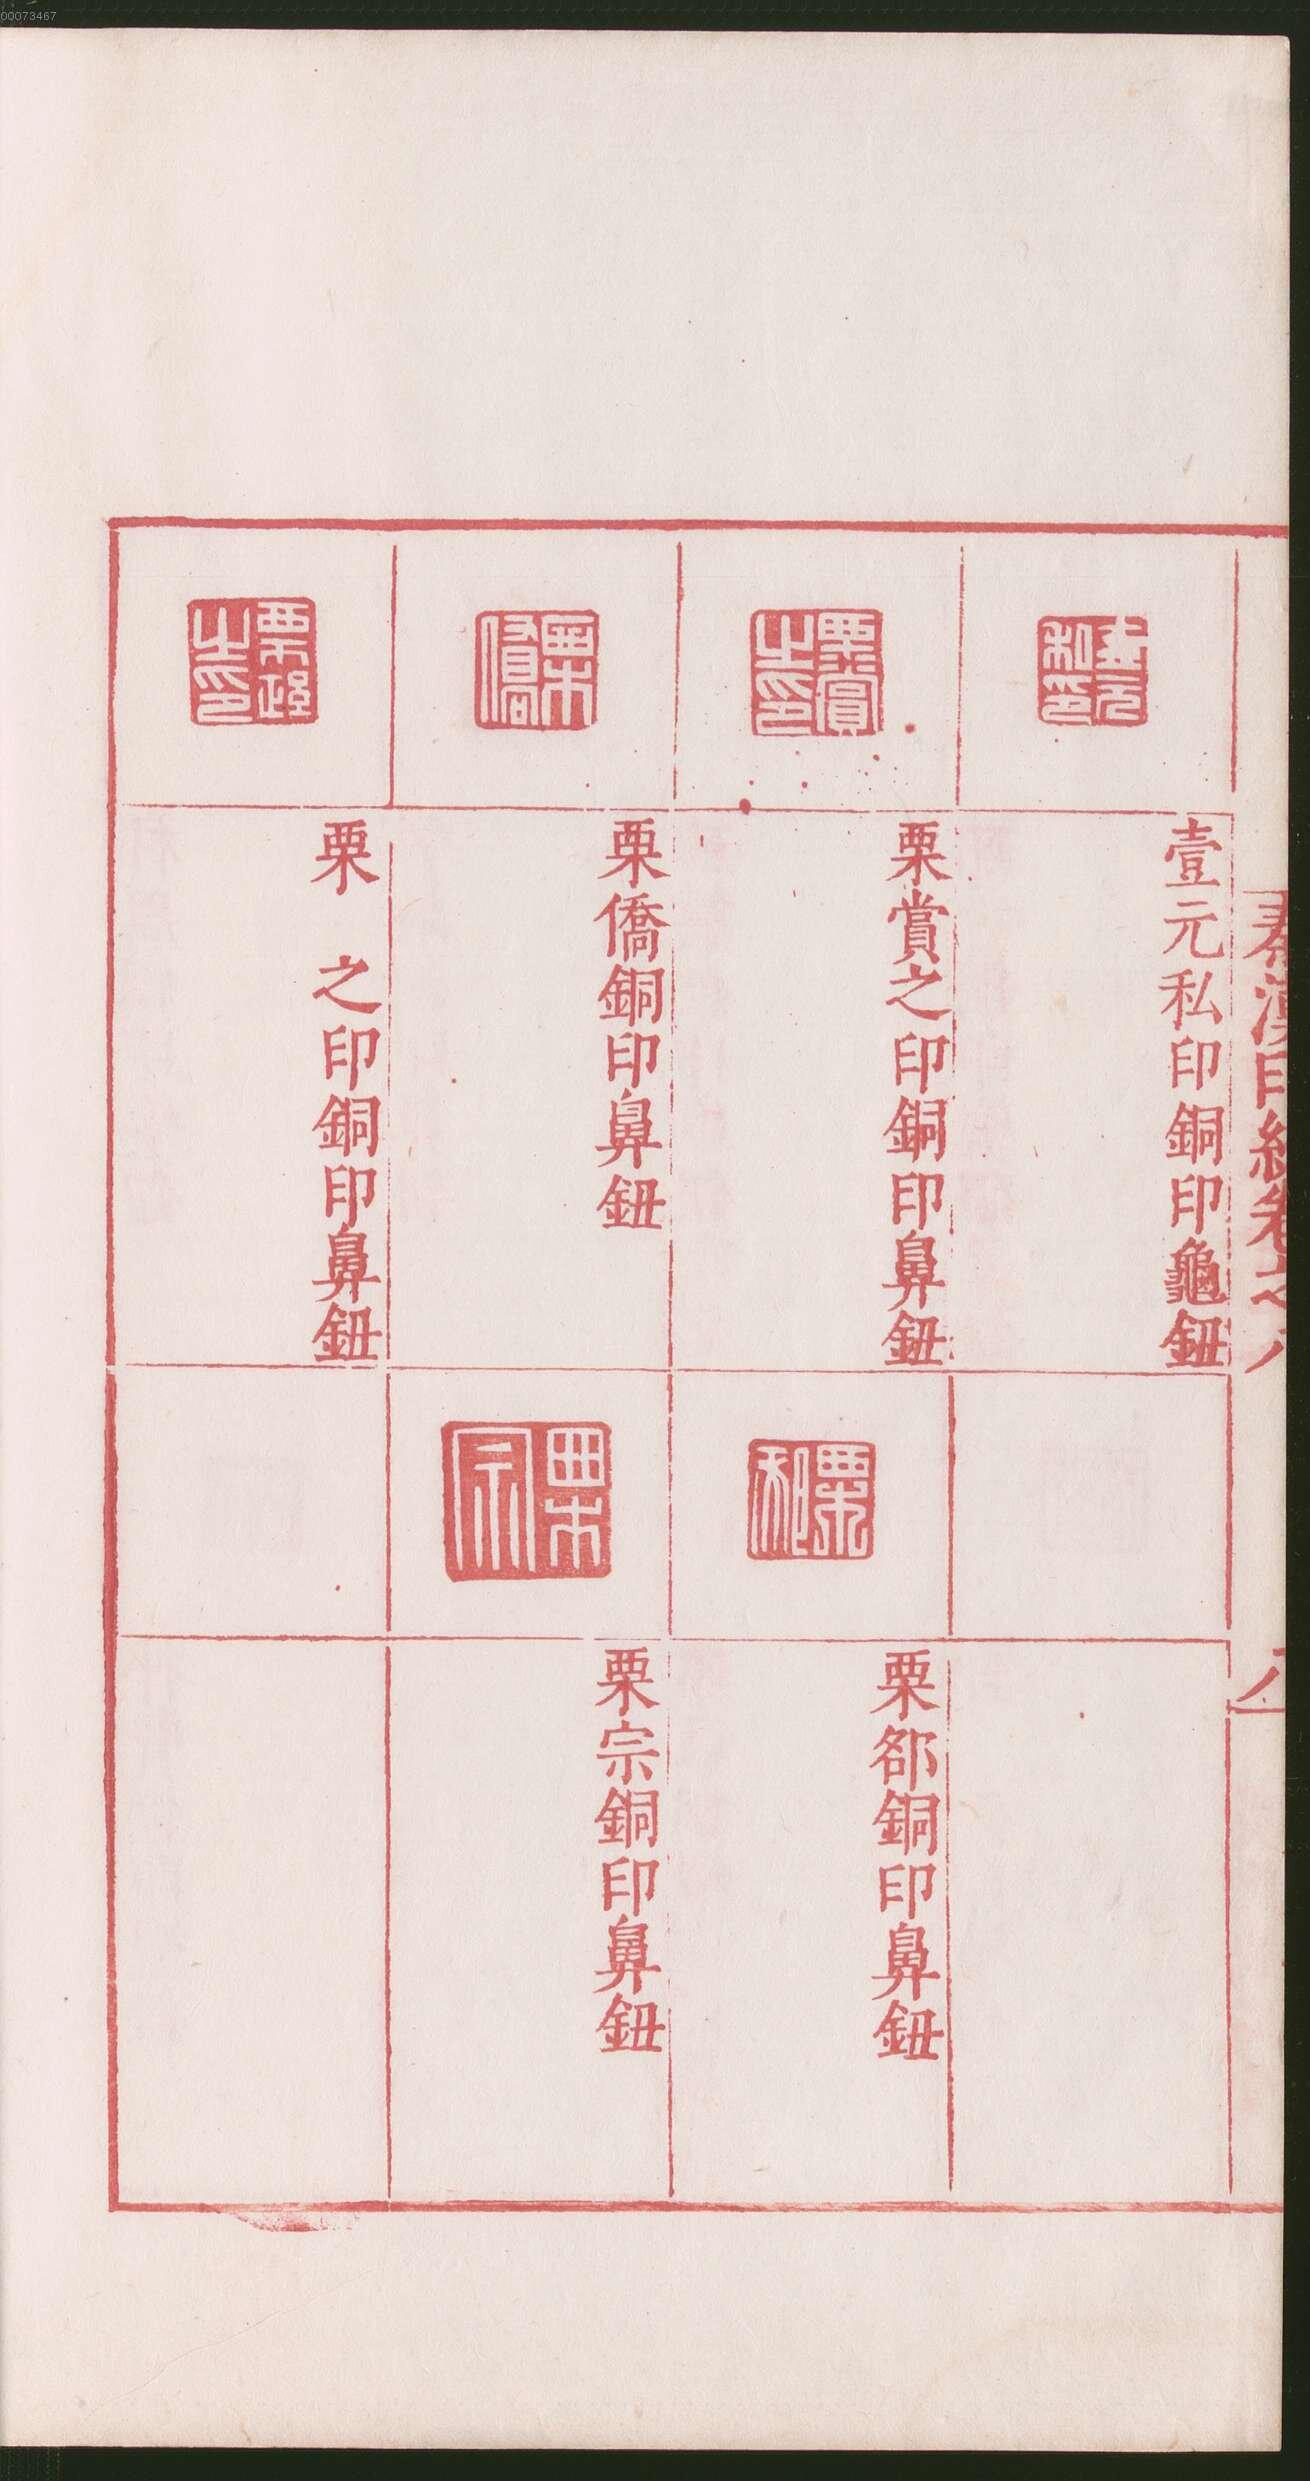 00073467
秦漢印統卷之八
八
壹元私印銅印龜鈕
栗賞之印銅印鼻鈕
栗郤銅印鼻鈕
栗僑銅印鼻鈕
栗宗銅印鼻鈕
栗 之印銅印鼻鈕